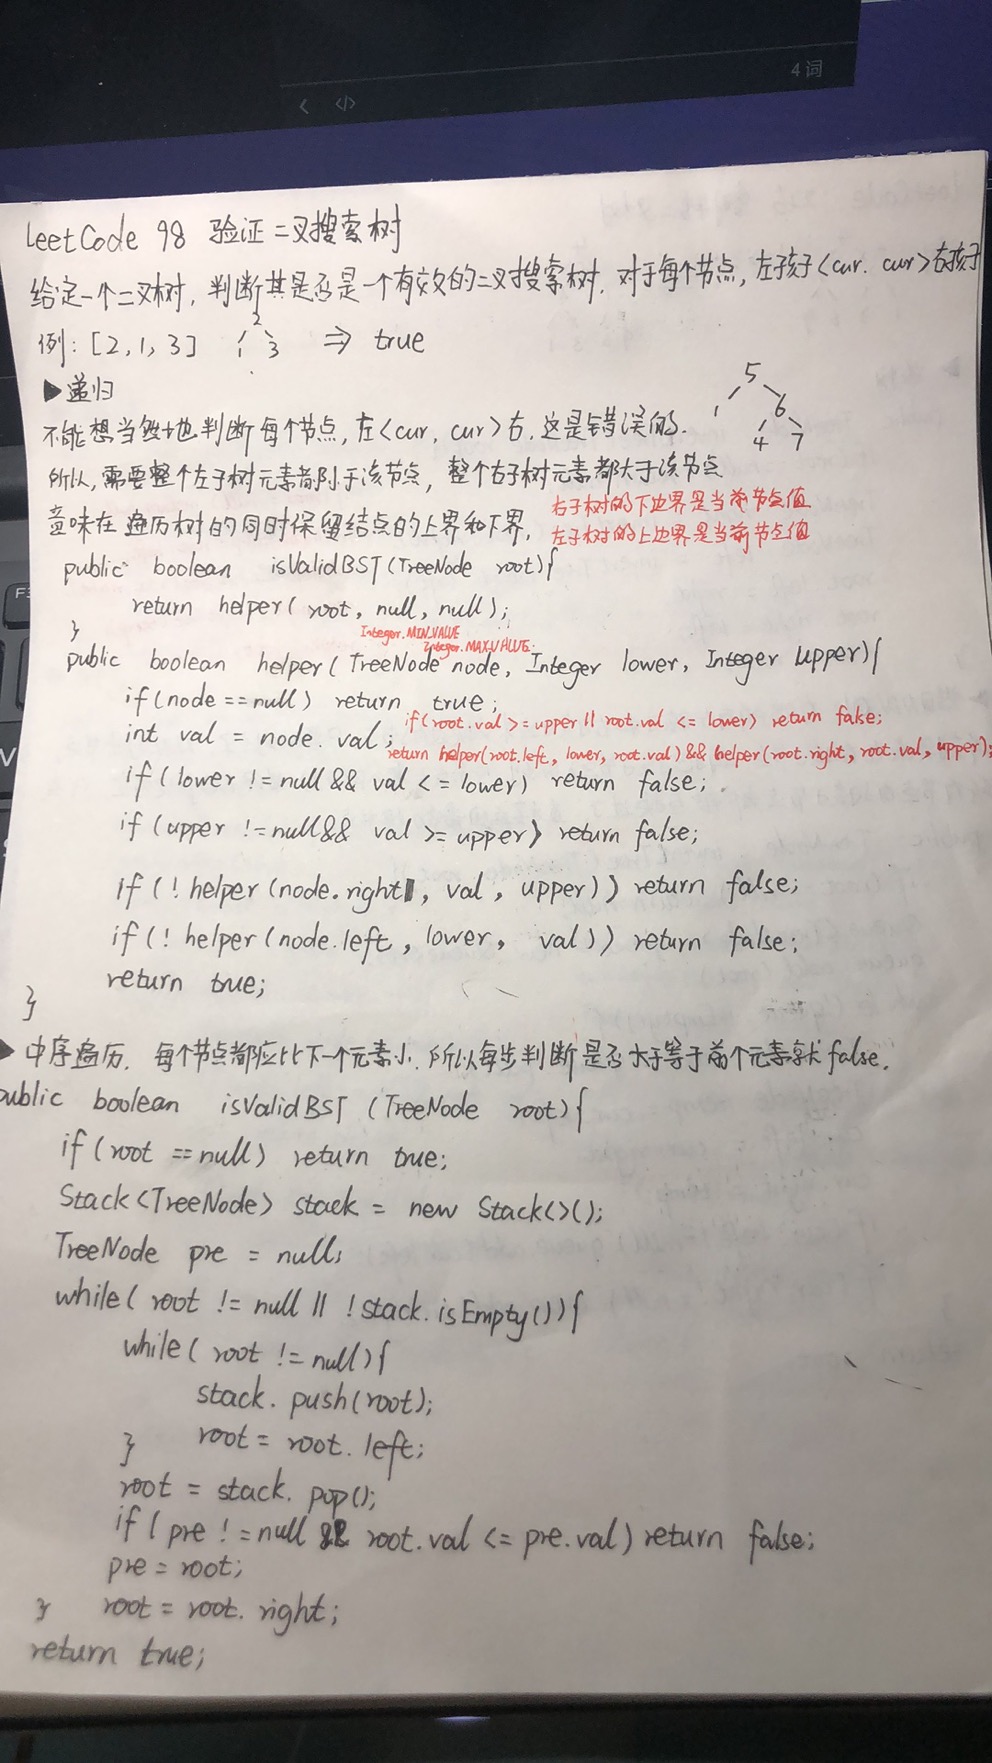 4词
LeetCode 98 验证二叉搜索树
给定一个二叉树, 判断其是否是一个有效的二叉搜索树. 对于每个节点, 左孩子<cur. cur>右孩子
例: [2,1,3]
2
1 3
⇒ true
▶递归
5
1 6
4 7
不能想当然地判断每个节点, 左<cur, cur>右. 这是错误的.
所以, 需要整个左子树元素都小于该节点, 整个右子树元素都大于该节点
意味在遍历树的同时保留结点的上界和下界,
右子树的下边界是当前节点值
左子树的上边界是当前节点值
public boolean isValidBST(TreeNode root){
return helper(root, null, null);
}
Integer.MIN_VALUE
Integer.MAX_VALUE.
public boolean helper(TreeNode node, Integer lower, Integer upper){
if(node==null) return true;
if(root.val >= upper || root.val <= lower) return false;
int val = node.val;
return helper(root.left, lower, root.val) && helper(root.right, root.val, upper);
if(lower != null && val <= lower) return false;
if(upper != null && val >= upper) return false;
if(! helper(node.right, val, upper)) return false;
if(! helper(node.left, lower, val)) return false;
return true;
}
▶中序遍历. 每个节点都应比下一个元素小. 所以每步判断是否大于等于前个元素就false.
public boolean isValidBST (TreeNode root){
if(root == null) return true;
Stack<TreeNode> stack = new Stack<>();
TreeNode pre = null;
while( root != null || !stack.isEmpty()){
while( root != null){
stack.push(root);
root = root.left;
}
root = stack.pop();
if( pre != null && root.val <= pre.val) return false;
pre = root;
root = root.right;
}
return true;